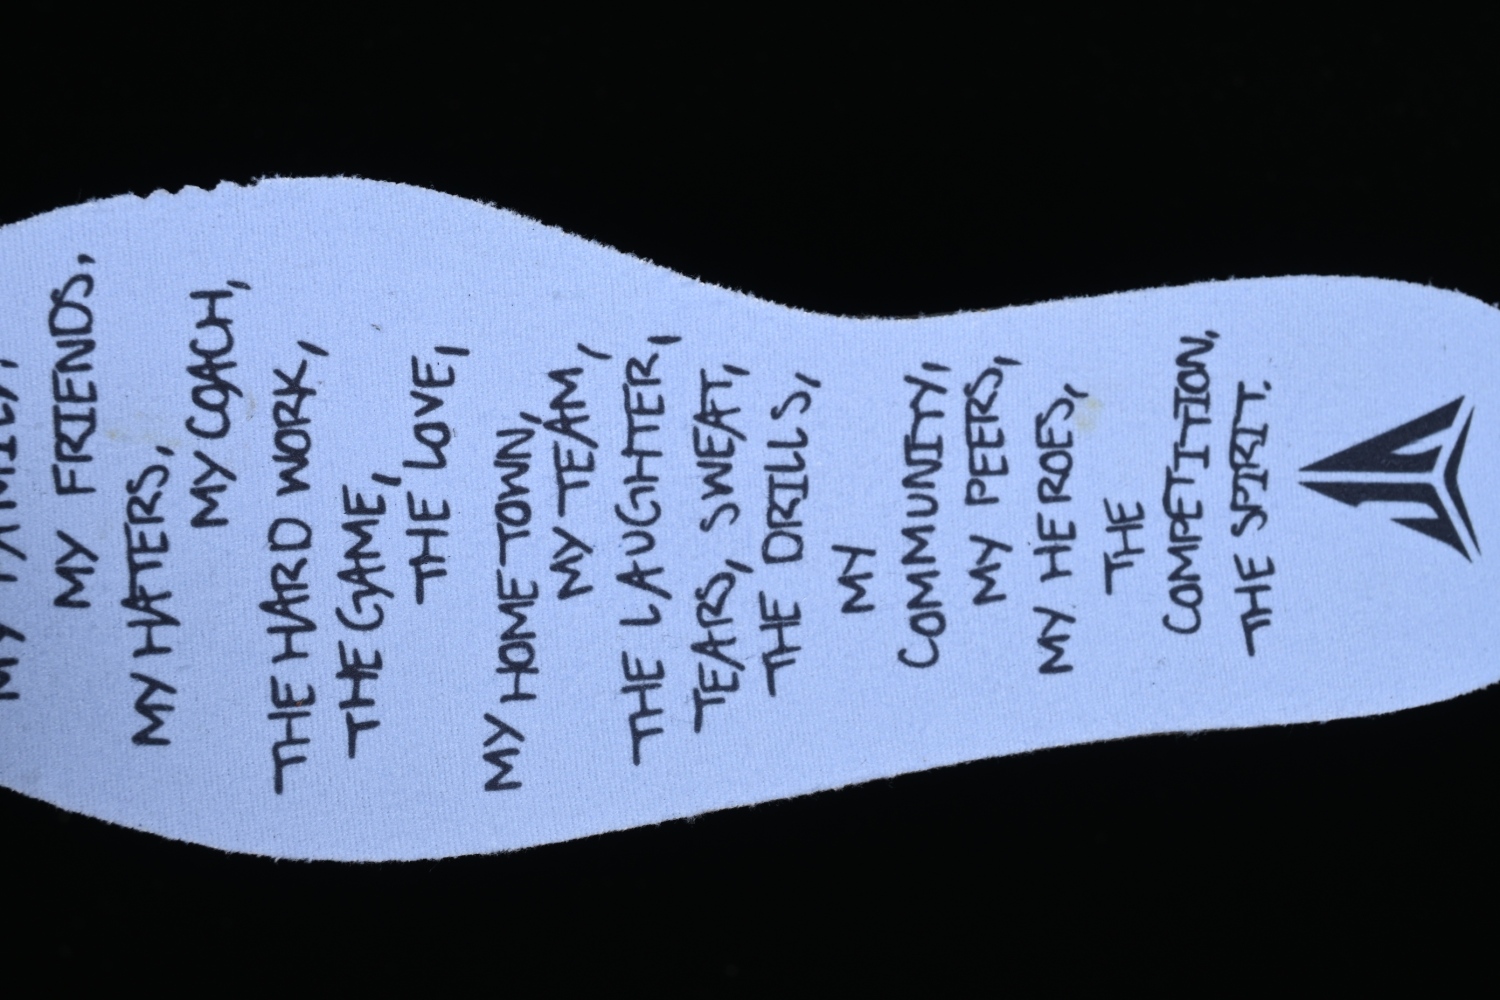 MY FAMILY,
MY FRIENDS,
MY HATERS,
MY COACH,
THE HARD WORK,
THE GAME,
THE LOVE,
MY HOME TOWN,
MY TEAM,
THE LAUGHTER,
TEARS, SWEAT,
THE DRILLS,
MY
COMMUNITY,
MY PEERS,
MY HEROES,
THE
COMPETITION,
THE SPIRIT.